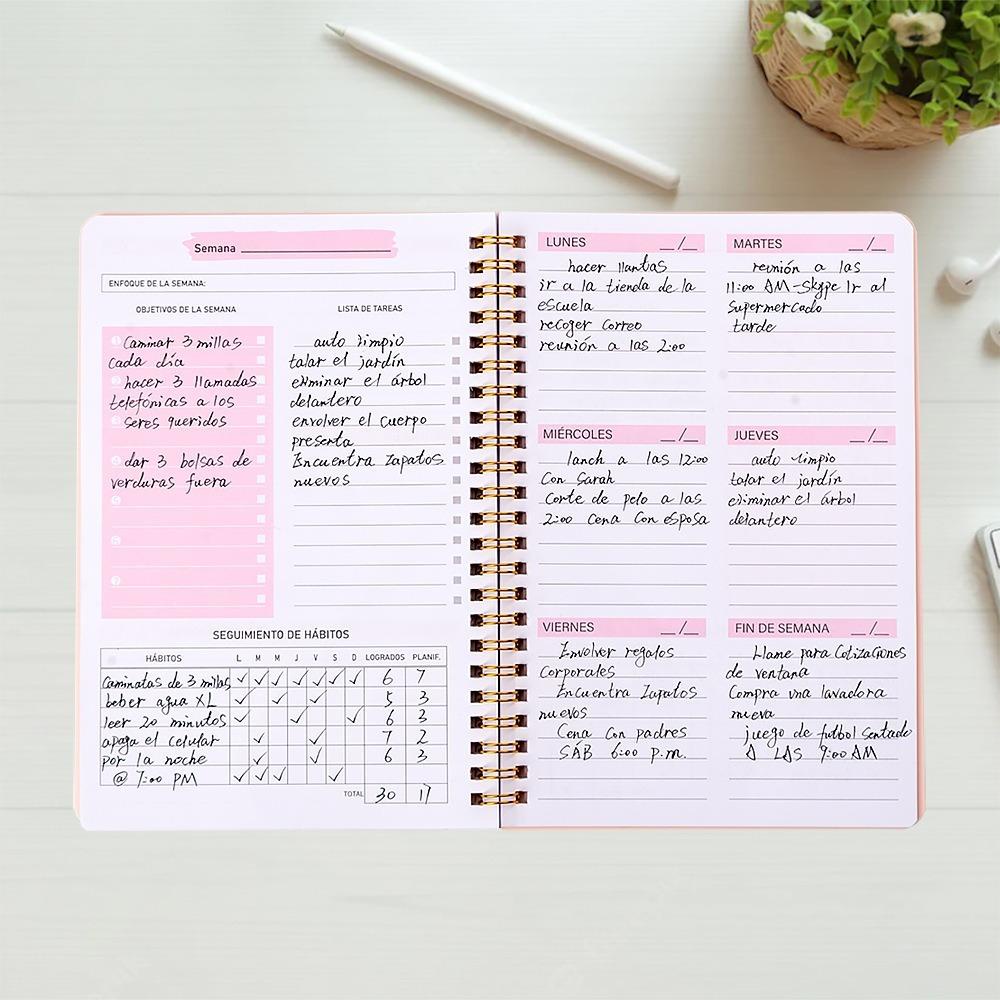 Semana
ENFOQUE DE LA SEMANA:
OBJETIVOS DE LA SEMANA
1 Caminar 3 millas
cada día
2 hacer 3 llamadas
telefónicas a los
seres queridos
dar 3 bolsas de
verduras fuera
5
6
7
LISTA DE TAREAS
auto limpio
talar el jardín
eliminar el árbol
delantero
envolver el cuerpo
presenta
Encuentra Zapatos
nuevos
SEGUIMIENTO DE HÁBITOS
HÁBITOS L M M J V S D LOGRADOS PLANIF.
Caminatas de 3 millas ✓ ✓ ✓ ✓ ✓ ✓ ✓ 6 7
beber agua XL ✓ ✓ ✓ 5 3
leer 20 minutos ✓ ✓ ✓ 6 3
apaga el celular ✓ ✓ 7 2
por la noche ✓ ✓ 6 3
@ 7:00 PM ✓ ✓ ✓ ✓
TOTAL 30 17
LUNES __/__
hacer llantas
ir a la tienda de la
escuela
recoger correo
reunión a las 2:00
MARTES __/__
reunión a las
11:00 AM-Skype Ir al
Supermercado
tarde
MIÉRCOLES __/__
lanch a las 12:00
Con Sarah
Corte de pelo a las
2:00 Cena Con esposa
JUEVES __/__
auto limpio
talar el jardín
eliminar el árbol
delantero
VIERNES __/__
Envolver regalos
Corporales
Encuentra Zapatos
nuevos
Cena Con padres
SÁB 6:00 p.m.
FIN DE SEMANA __/__
Llame para Cotizaciones
de ventana
Compra una lavadora
nueva
juego de futbol Sentado
A LAS 9:00 AM